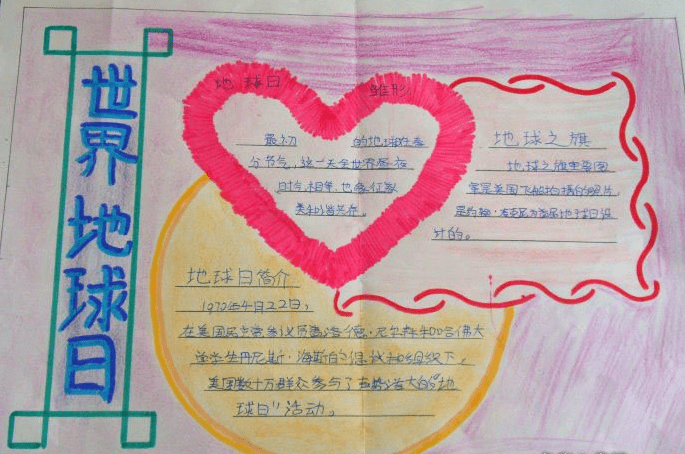 世界地球日
地球日 雏形
最初 的地球日在春
分节气，这一天全世界昼夜
时分相等，也象征取
类和谐共存。
地球之旗
地球之旗里
美国飞船拍摄的照片，
是约翰·麦克 为首届地球日设
计的。
地球日简介
1970年4月22日，
在美国民主党参议员盖洛德·尼尔森和哈佛大
学学生丹尼斯·海斯的提议和组织下，
美国数十万群众参与了声势浩大的“地
球日”活动。